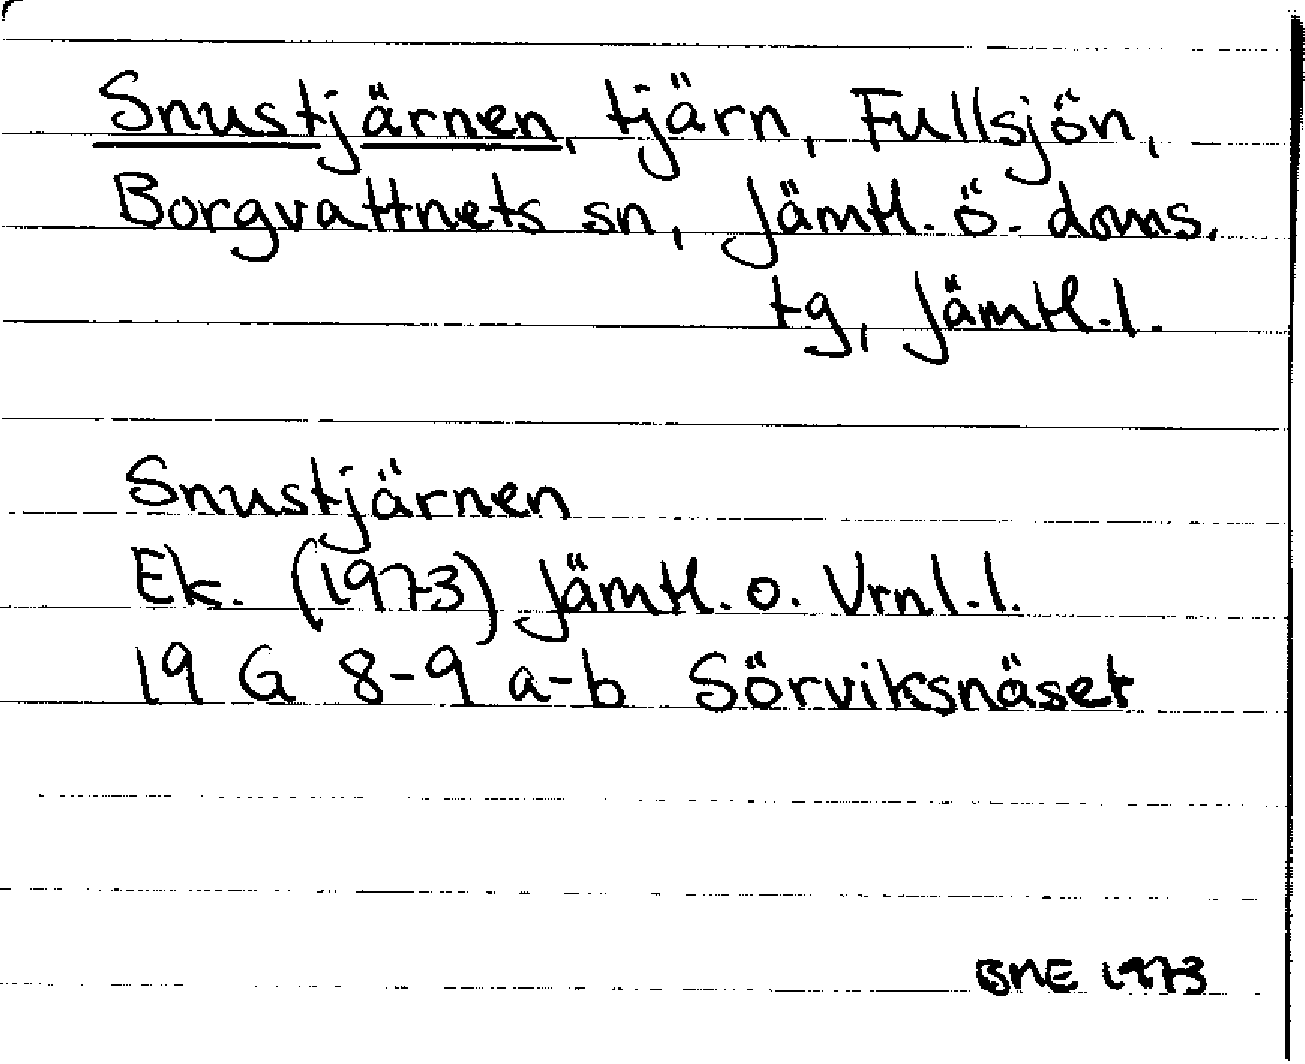 Snustjärnen, tjärn, Fullsjön,
Borgvattnets sn, Jämtl. ö. doms.
tg, Jämtl. l.
Snustjärnen
Ek. (1973) Jämtl. o. Vrnl. l.
19 G 8-9 a-b Sörviksnäset
BNE 1973